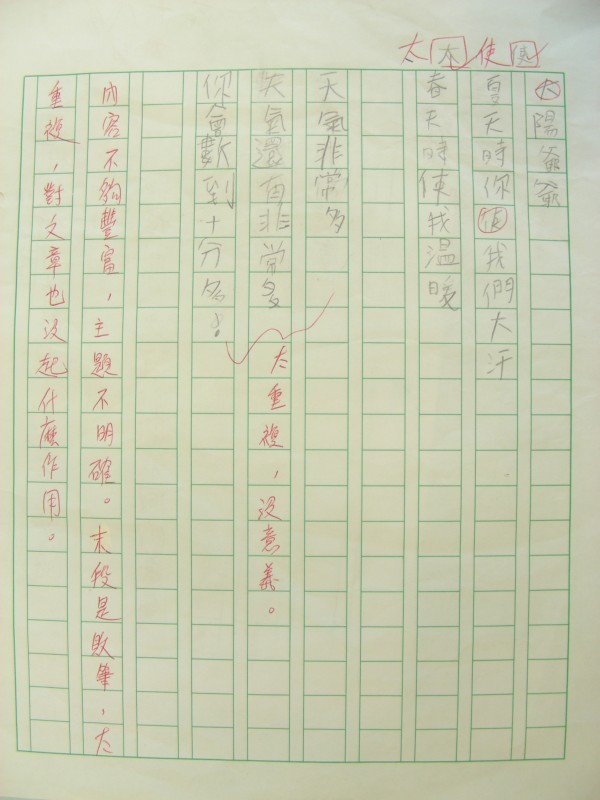 太本使使
太陽爺爺
夏天時你使我們大汗
春天時使我溫暖
天氣非常多
天氣還有非常多
你會數到十分多!
太重複,沒意義。
內容不夠豐富,主題不明確。末段是敗筆,太
重複,對文章也沒起什麼作用。